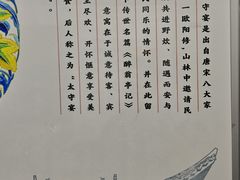 守宴是出自唐宋八大家
一欧阳修"山林中邀请民
共进野炊、随遇而安与
民同乐的情怀。并在此留
下传世名篇《醉翁亭记》
意寓在于诚意待客、宾
主尽欢、开怀惬意享受美
食，后人称之为"太守宴